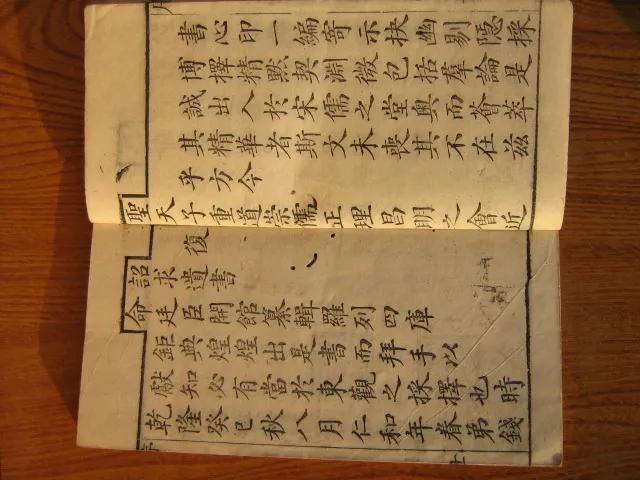 書心印一編寄示抉幽剔隱採
博擇精默契淵微包括羣論是
誠出入於宋儒之堂奧而薈萃
其精華者斯文未喪其不在茲
乎方今
聖天子重道崇儒正理昌明之會近
復
詔求遺書
命廷臣開館纂輯羅列四庫
鉅典煌煌出是書而拜手以
獻知必有當於東觀之採擇也時
乾隆癸巳秋八月仁和年眷弟錢